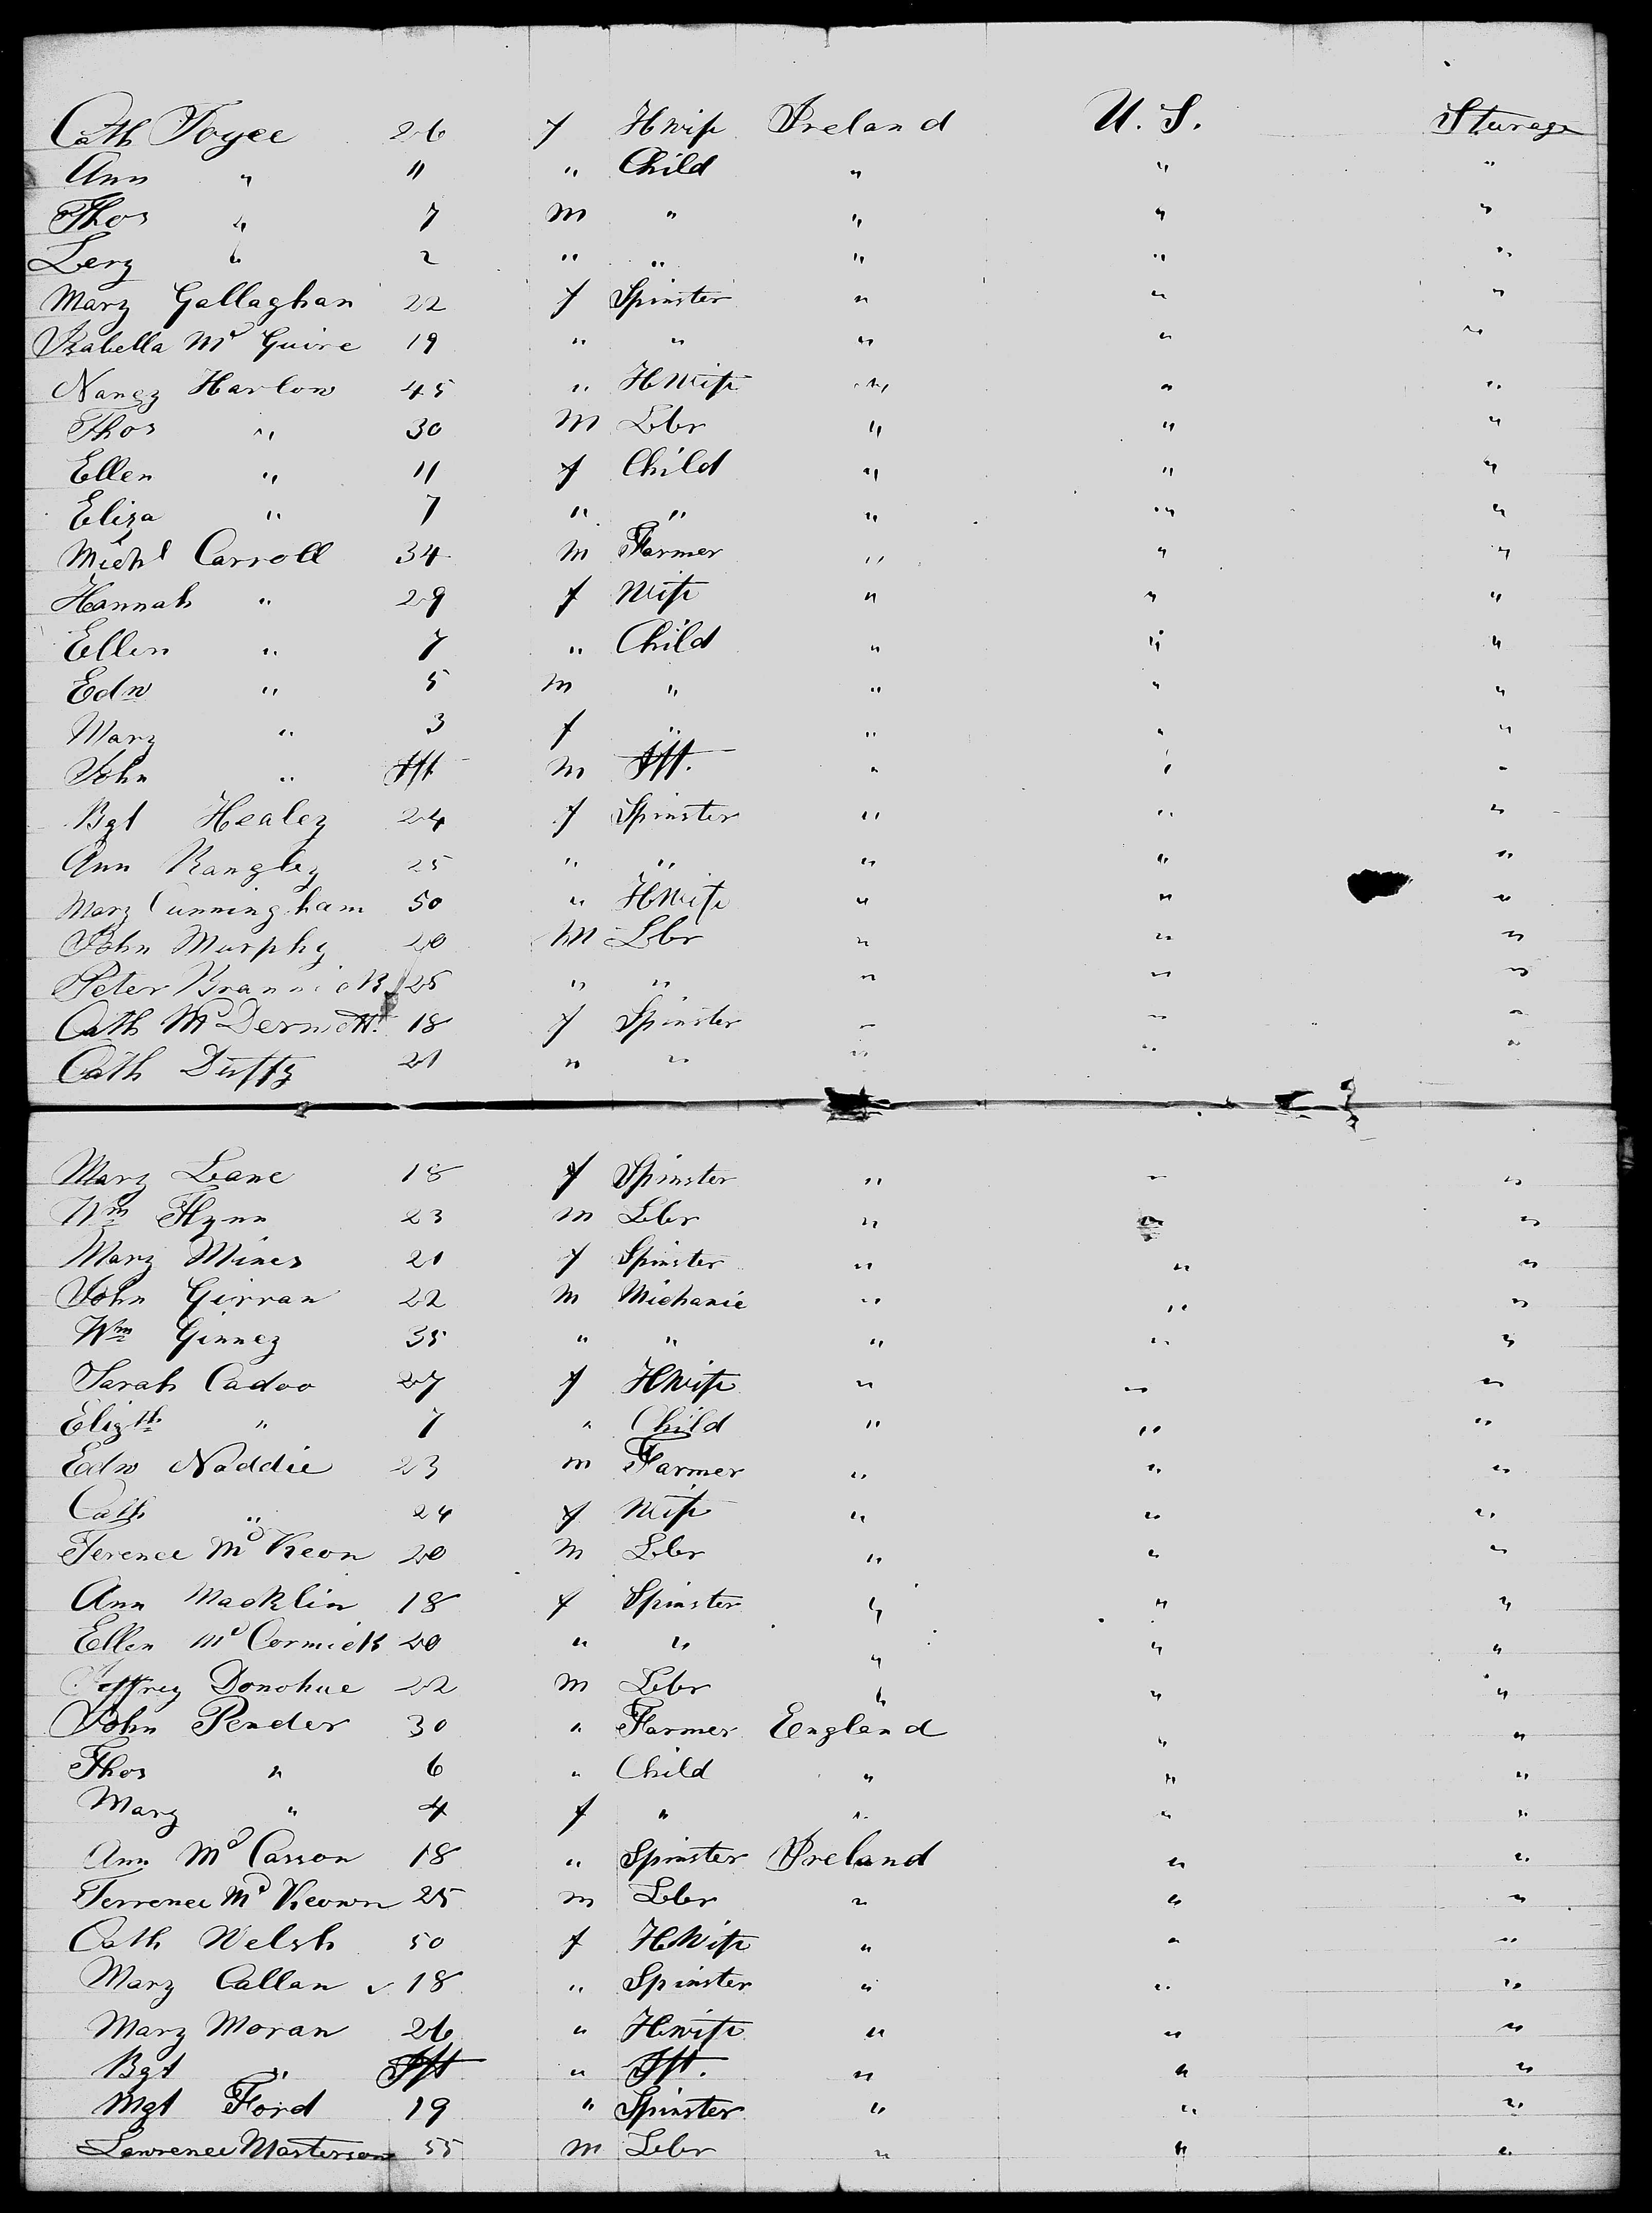 Cath Joyce 26 f HWife Ireland U.S. Sterage
Ann " 11 " Child " " "
Thos " 7 m " " " "
Levy " 2 " " " " "
Mary Gallaghan 22 f Spinster " " "
Isabella McGuire 19 " " " " "
Nancy Harlow 45 " HWife " " "
Thos " 30 m Lbr " " "
Ellen " 11 f Child " " "
Eliza " 7 " " " " "
Michl Carroll 34 m Farmer " " "
Hannah " 29 f Wife " " "
Ellen " 7 " Child " " "
Edw " 5 m " " " "
Mary " 3 f " " " "
John " Ift m Ift. " " "
Bgt Healey 24 f Spinster " " "
Ann Rangley 25 " " " " "
Mary Cunningham 50 " HWife " " "
John Murphy 20 m Lbr " " "
Peter 25 " " " " "
Cath McDermott 18 f Spinster " " "
Cath Duffy 21 " " " " "
Mary Lane 18 f Spinster " " "
Wm Flynn 23 m Lbr " " "
Mary Mines 21 f Spinster " " "
John Girran 22 m Michanic " " "
Wm Ginney 35 " " " " "
Sarah Cadoo 27 f HWife " " "
Elizth " 7 " Child " " "
Edw Naddie 23 m Farmer " " "
Cath " 24 f Wife " " "
Terence McKeon 20 m Lbr " " "
Ann Macklin 18 f Spinster " " "
Ellen McCormick 20 " " " " "
Jeffrey Donohue 22 m Lbr " " "
John Pender 30 " Farmer England " "
Thos " 6 " Child " " "
Mary " 4 f " " " "
Ann McCasson 18 " Spinster Ireland " "
Terrence McKeown 25 m Lbr " " "
Cath Welsh 50 f HWife " " "
Mary Callan 18 " Spinster " " "
Mary Moran 26 " Hwife " " "
Bgt " Ift " Ift. " " "
Mgt Ford 19 " Spinster " " "
Lawrence Masterson 55 m Lbr " " "